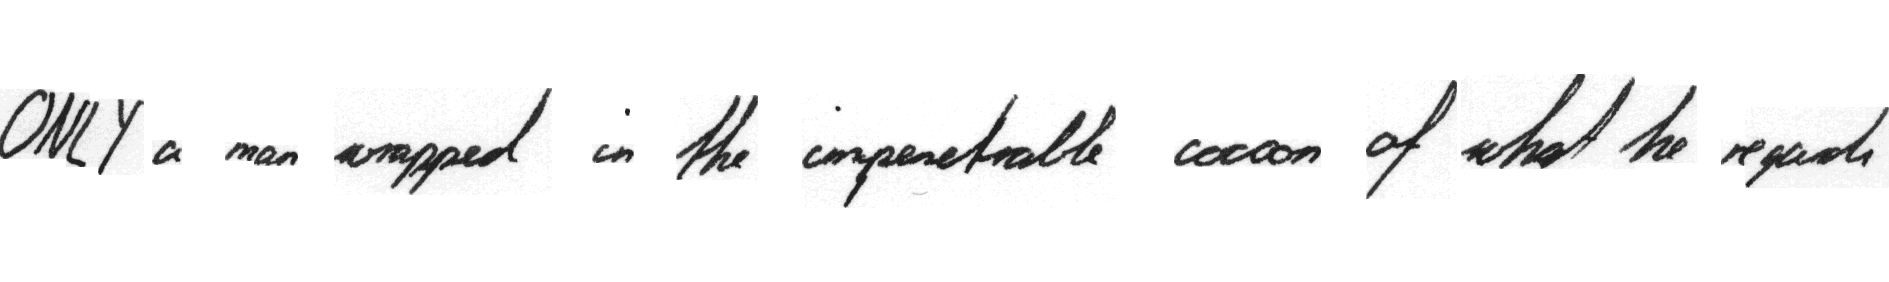 ONLY a man wrapped in the impenetrable cocoon of what he regards